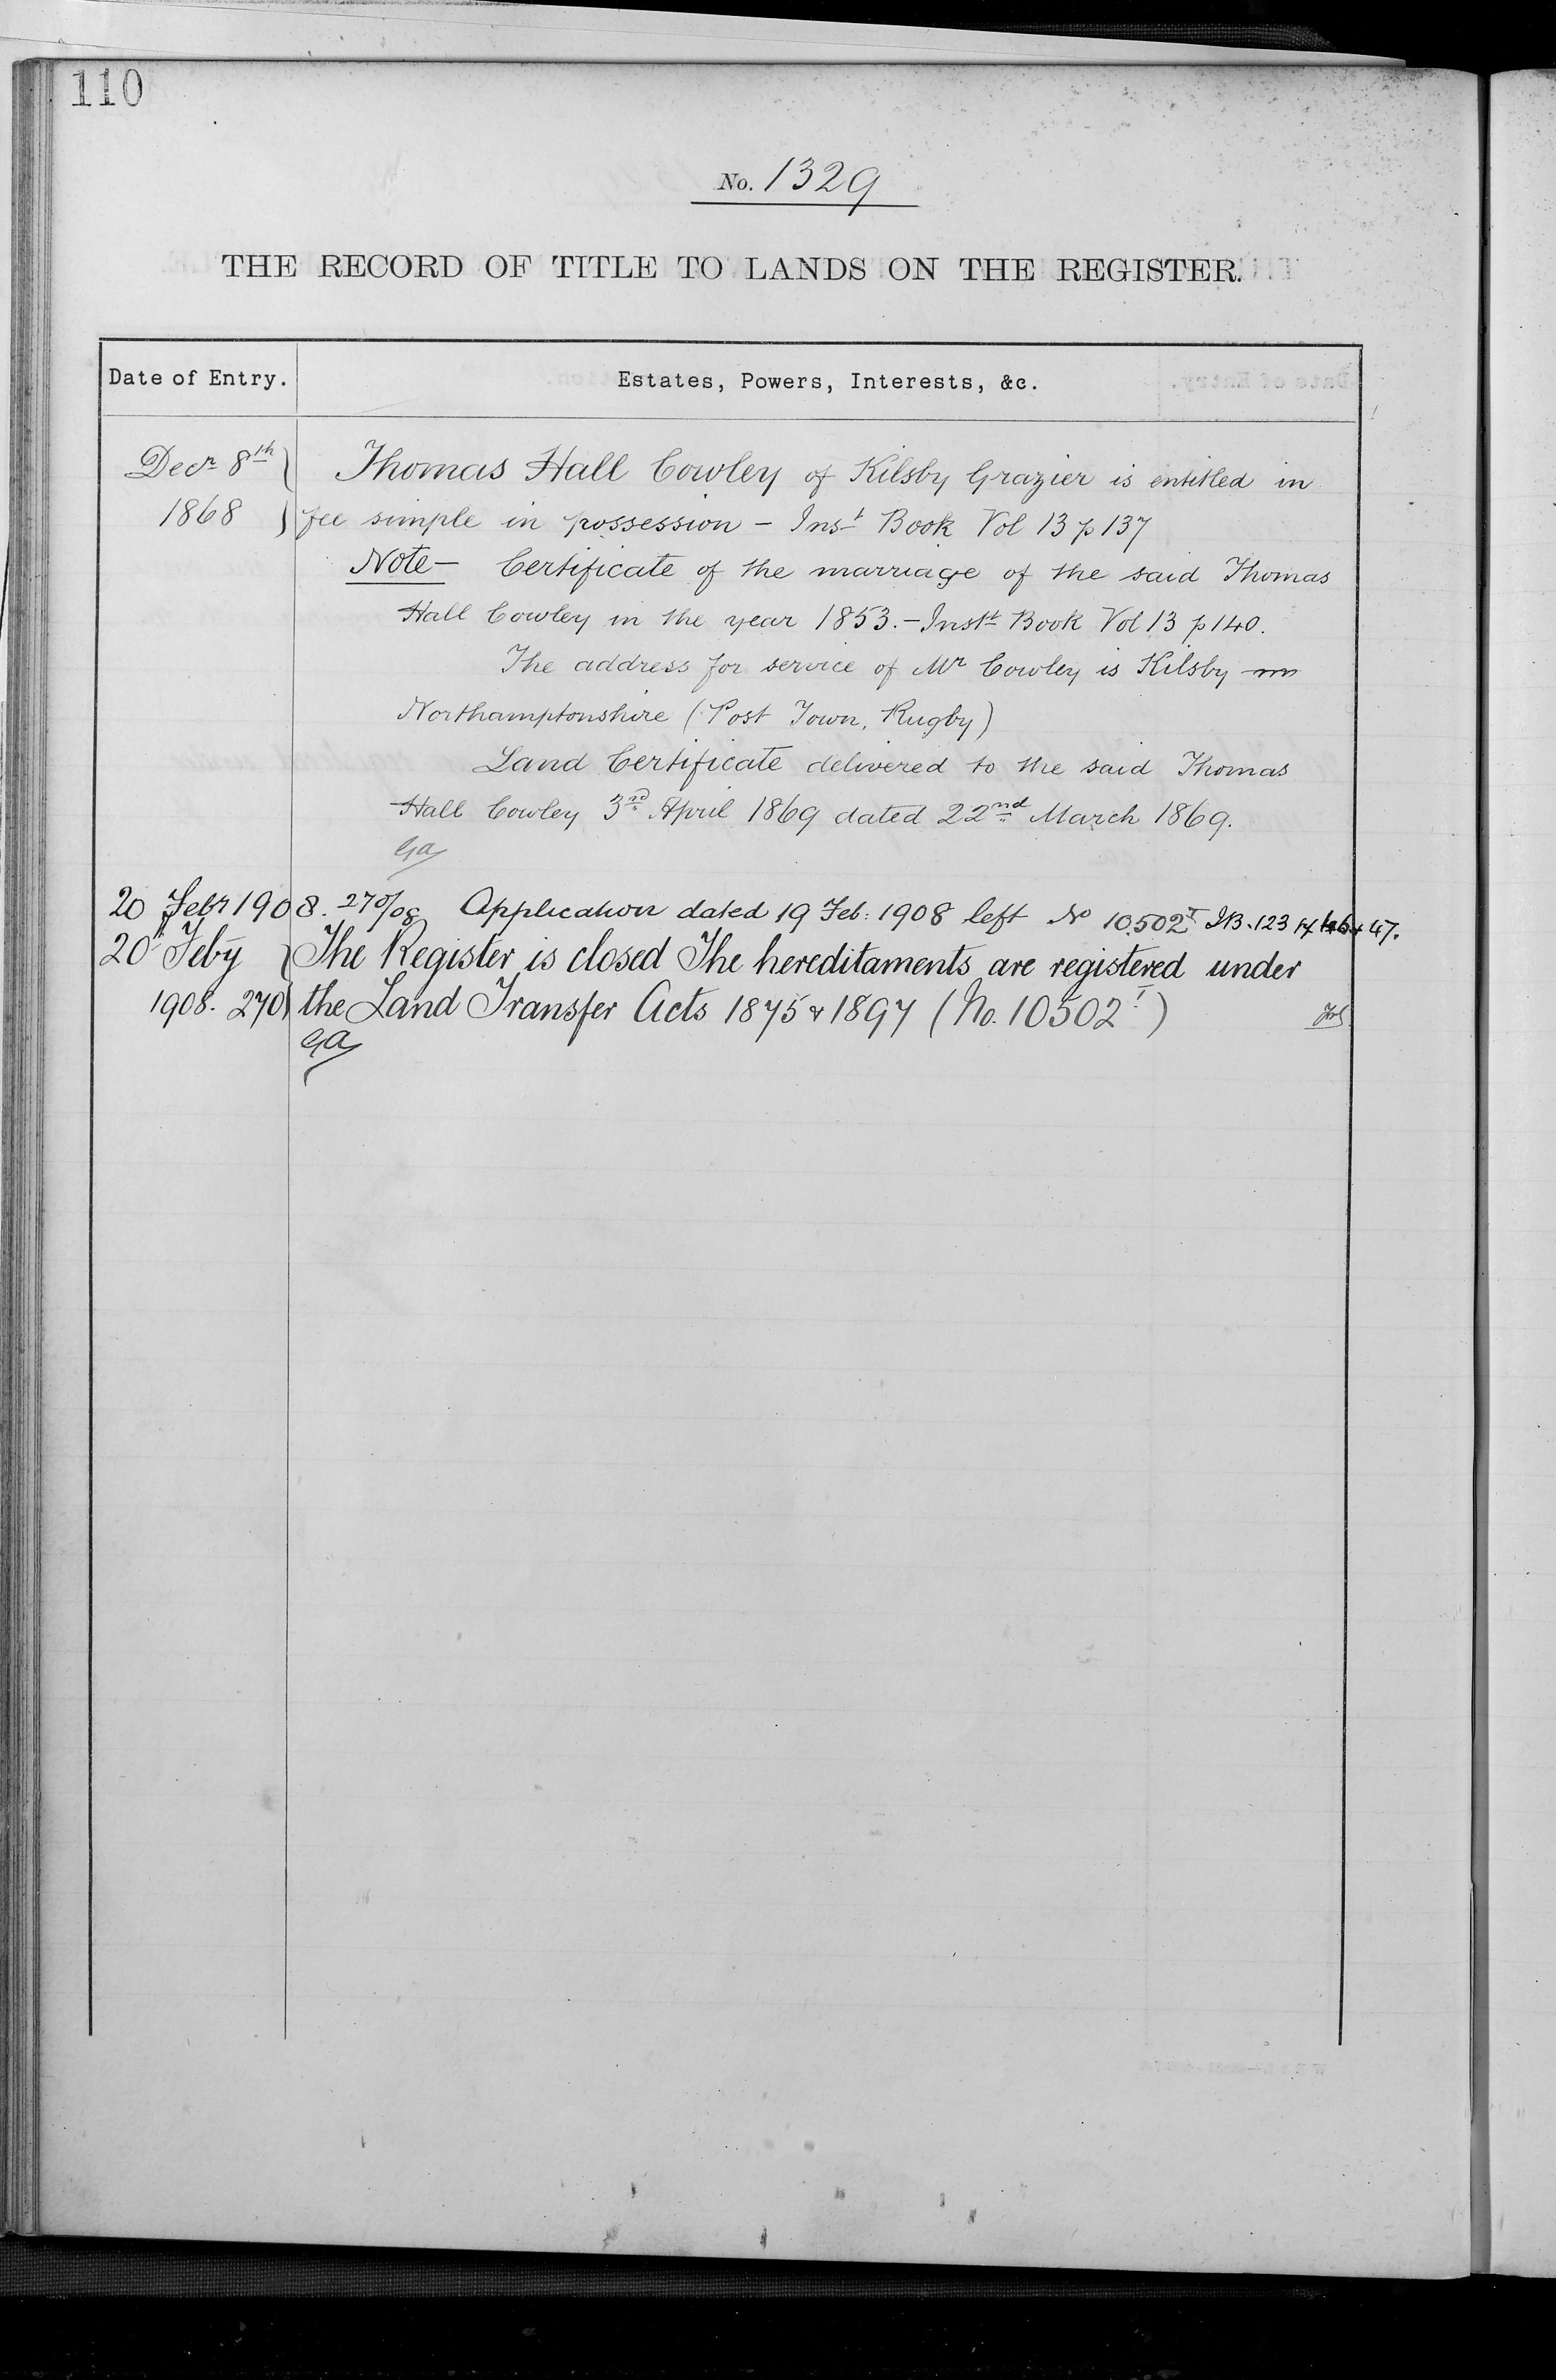 110
No. 1329
THE RECORD OF TITLE TO LANDS ON THE REGISTER.
Date of Entry. Estates, Powers, Interests, &c.
Decr 8th Thomas Hall Cowley of Kilsby Grazier is entitled in
1868 fee simple in possession – Inst Book Vol 13 p 137
Note – Certificate of the marriage of the said Thomas
Hall Cowley in the year 1853. – Instt Book Vol 13 p 140.
The address for service of Mr Cowley is Kilsby
Northamptonshire (Post Town, Rugby)
Land Certificate delivered to the said Thomas
Hall Cowley 3rd April 1869 dated 22nd March 1869.
GA
20 Febr 1908. 270/08 Application dated 19 Feb: 1908 left No 10502 I B. 123 47.
20th Feby The Register is closed The hereditaments are registered under
1908. 270 the Land Transfer Acts 1875 & 1897 (No. 10502 I)
GA